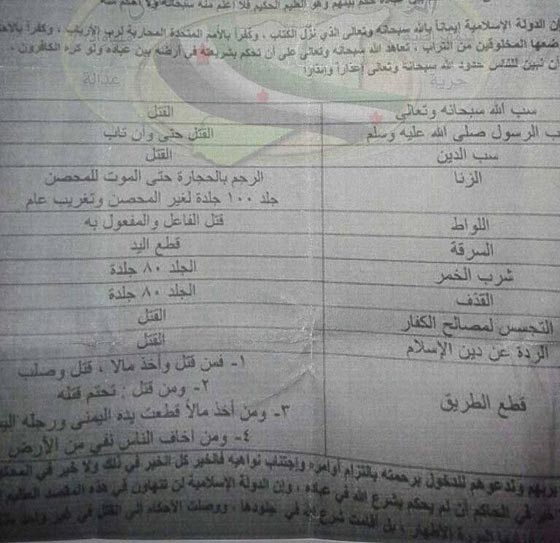 إن الدولة الإسلامية إيماناً بالله سبحانه وتعالى الذي نزّل الكتاب ، وكفراً بالأمم المتحدة المحاربة لرب الأرباب ، وكفراً
المخلوقين من التراب ، تعاهد الله سبحانه وتعالى على أن تحكم بشريعته في أرضه بين عباده ولو كره الكافرون .
أن نبين للناس حدود الله سبحانه وتعالى إعذاراً وإنذاراً
حرية
عدالة
سب الله سبحانه وتعالى القتل
الرسول صلى الله عليه وسلم القتل حتى وأن تاب
سب الدين القتل
الزنا الرجم بالحجارة حتى الموت للمحصن
جلد ١٠٠ جلدة لغير المحصن وتغريب عام
اللواط قتل الفاعل والمفعول به
السرقة قطع اليد
شرب الخمر الجلد ٨٠ جلدة
القذف الجلد ٨٠ جلدة
التجسس لمصالح الكفار القتل
الردة عن دين الإسلام القتل
قطع الطريق
١- فمن قتل وأخذ مالا ، قتل وصلب
٢- ومن قتل : تحتم قتله
٣- ومن أخذ مالاً قطعت يده اليمنى ورجله
٤- ومن أخاف الناس نفي من الأرض
وندعوهم للدخول برحمته بالتزام أوامره وإجتناب نواهيه فالخير كل الخير في ذلك ولا خير في
خير في الحاكم أن لم يحكم بشرع الله في عباده ، وإن الدولة الإسلامية لن تتهاون في هذه المقصد
بل أقامت شرع الله في جلودها ، ووصلت الأحكام إلى القتل في غير واحد